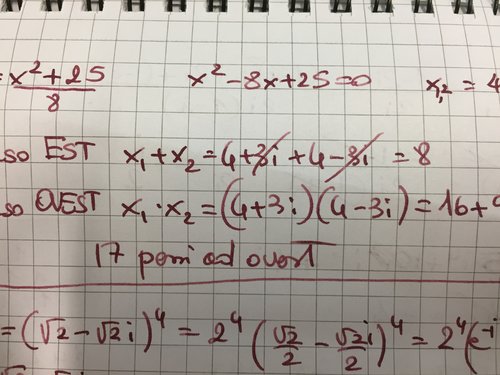 = x²+25/8 x²-8x+25=0 x₁,₂ = 4
so EST x₁+x₂=4+3i+4-3i =8
so OVEST x₁·x₂=(4+3i)(4-3i)=16+9
17 ad ovest
=(√2-√2i)⁴ = 2⁴(√2/2 - √2i/2)⁴ = 2⁴(e^-i